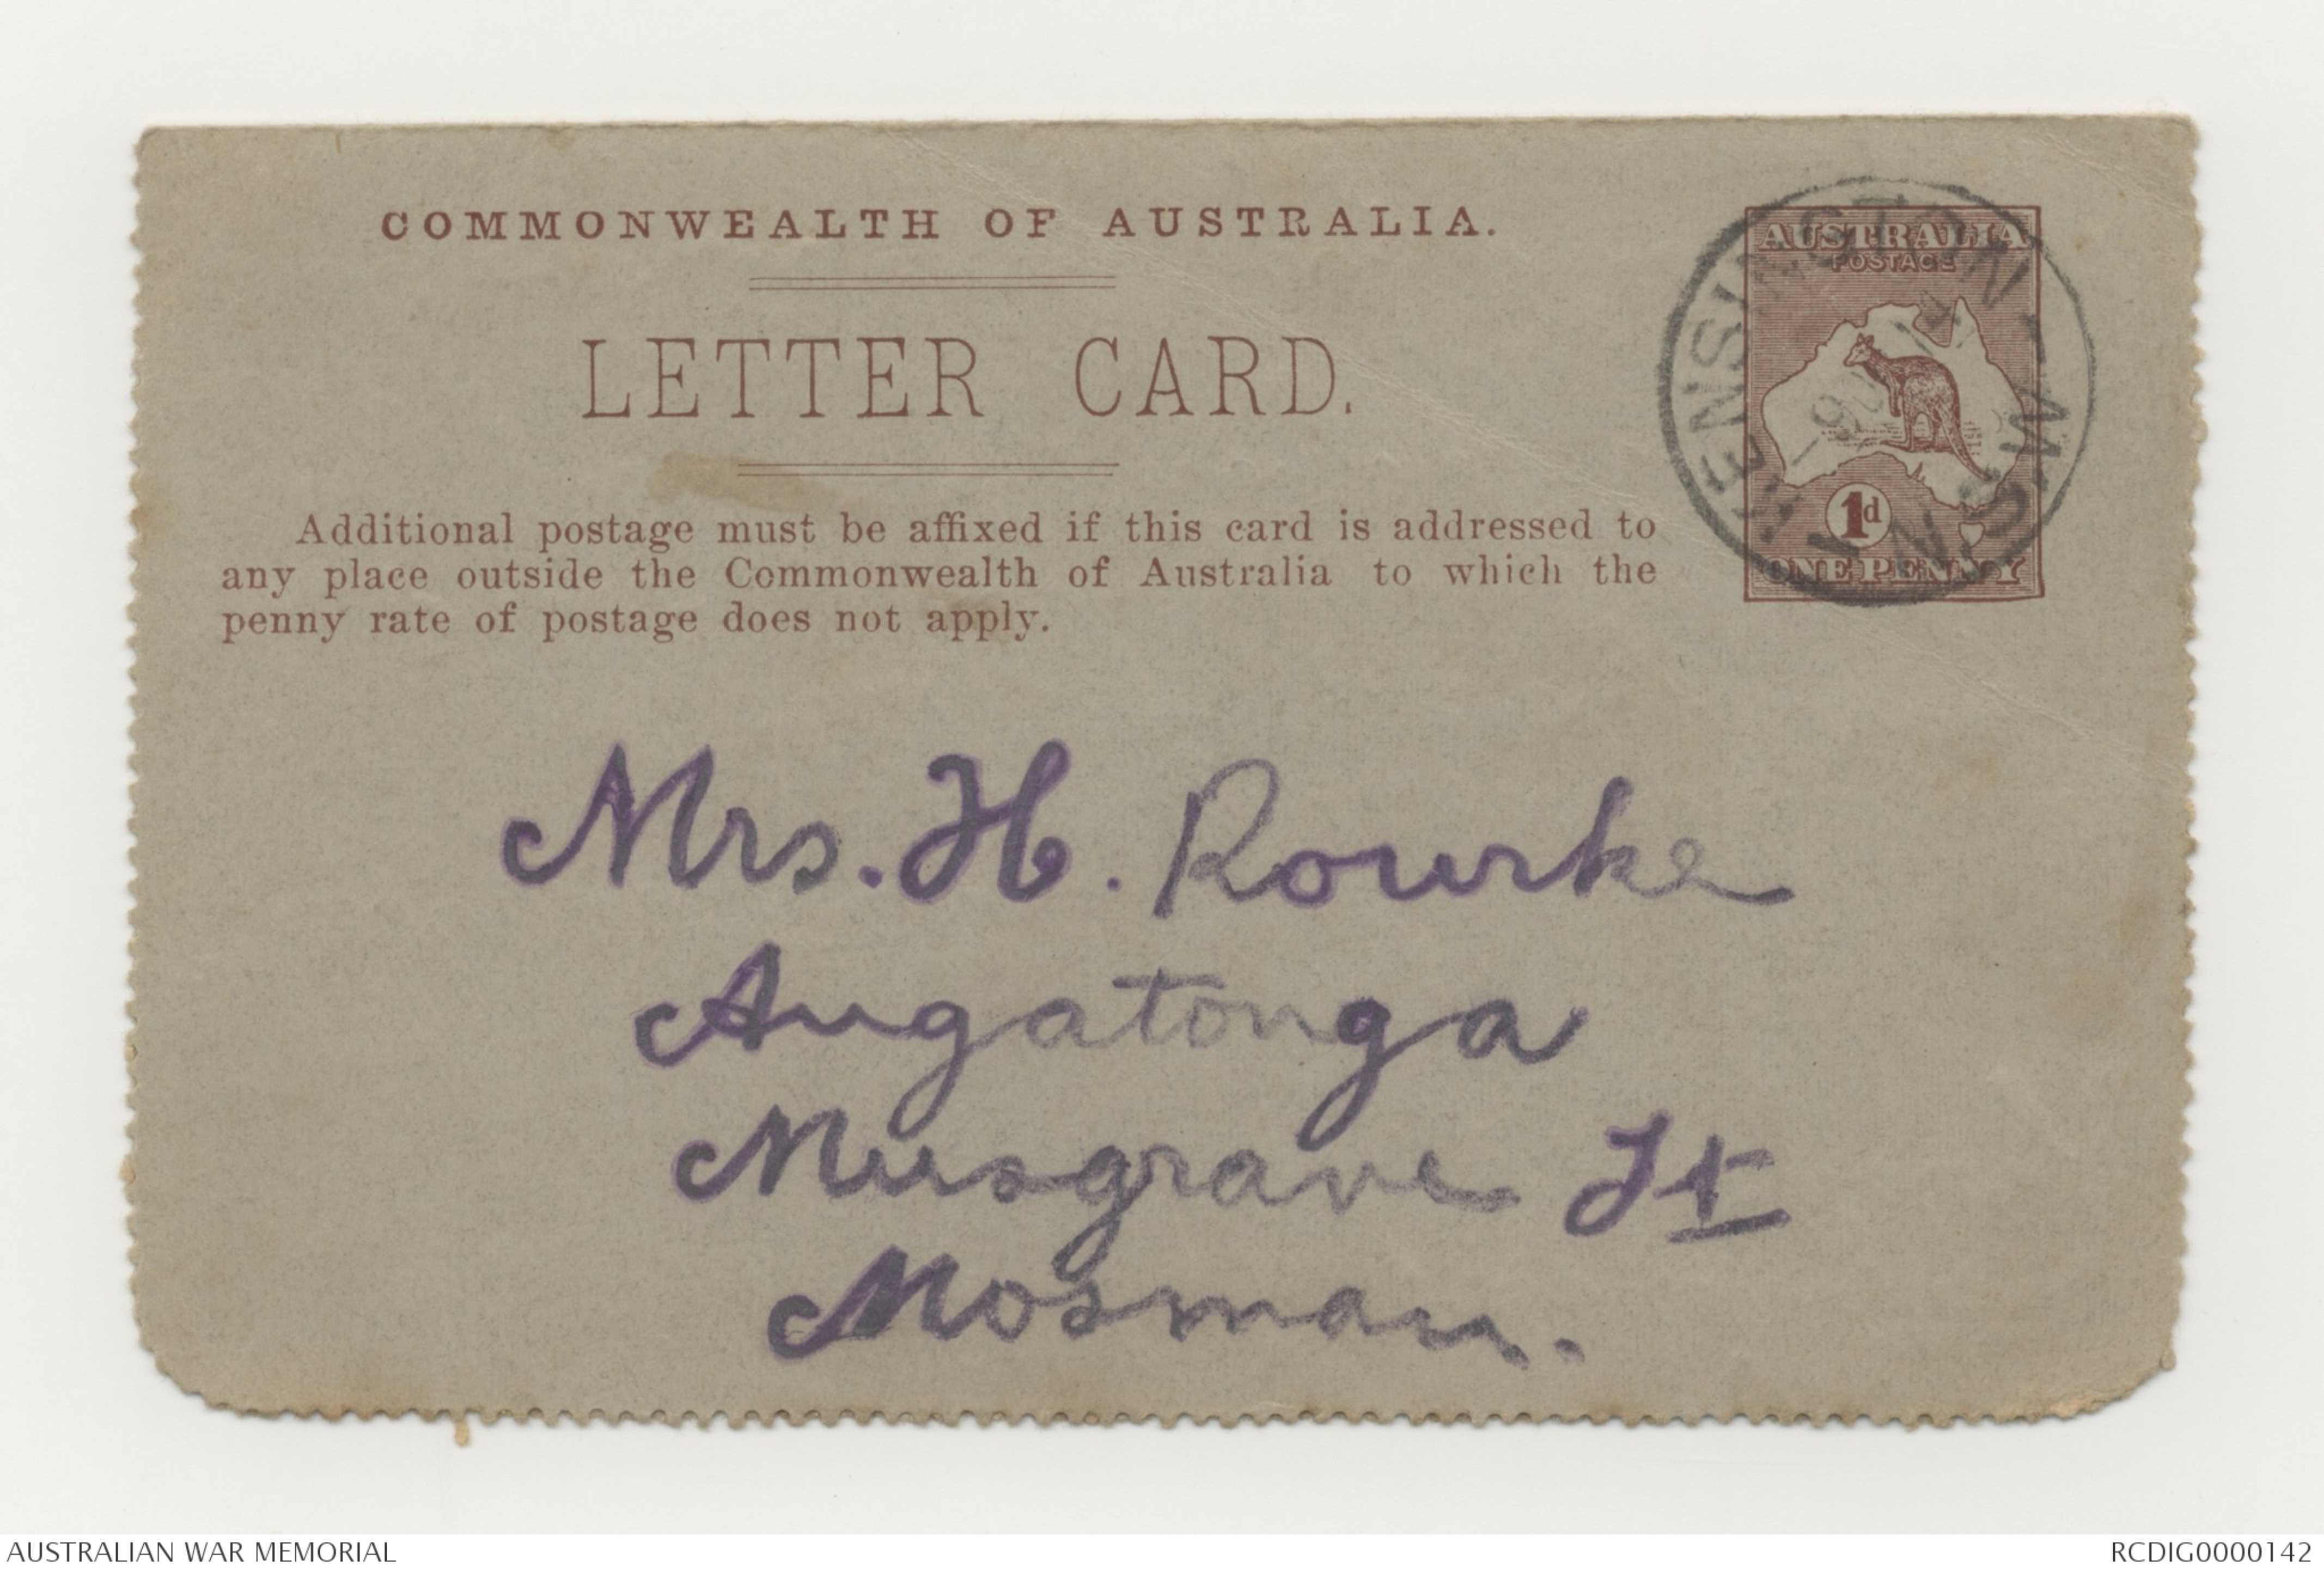 COMMONWEALTH OF AUSTRALIA.
LETTER CARD.
Additional postage must be affixed if this card is addressed to
any place outside the Commonwealth of Australia to which the
penny rate of postage does not apply.
AUSTRALIA
POSTAGE
1d
ONE PENNY
KENSINGTON
N.S.W
Mrs. H. Rourke
Augatonga
Musgrave St
Mosman.
AUSTRALIAN WAR MEMORIAL
RCDIG0000142